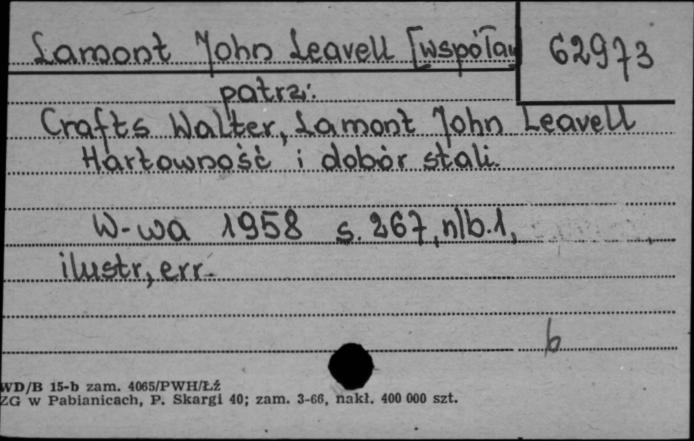 Lamont John Leavell [współau
62973
patrz:
Crafts Walter, Lamont John Leavell
Hartowność i dobór stali.
W-wa 1958 s. 267, nlb. 1,
ilustr, err.
b
WD/B 15-b zam. 4065/PWH/Łź
ZG w Pabianicach, P. Skargi 40; zam. 3-66, nakł. 400 000 szt.